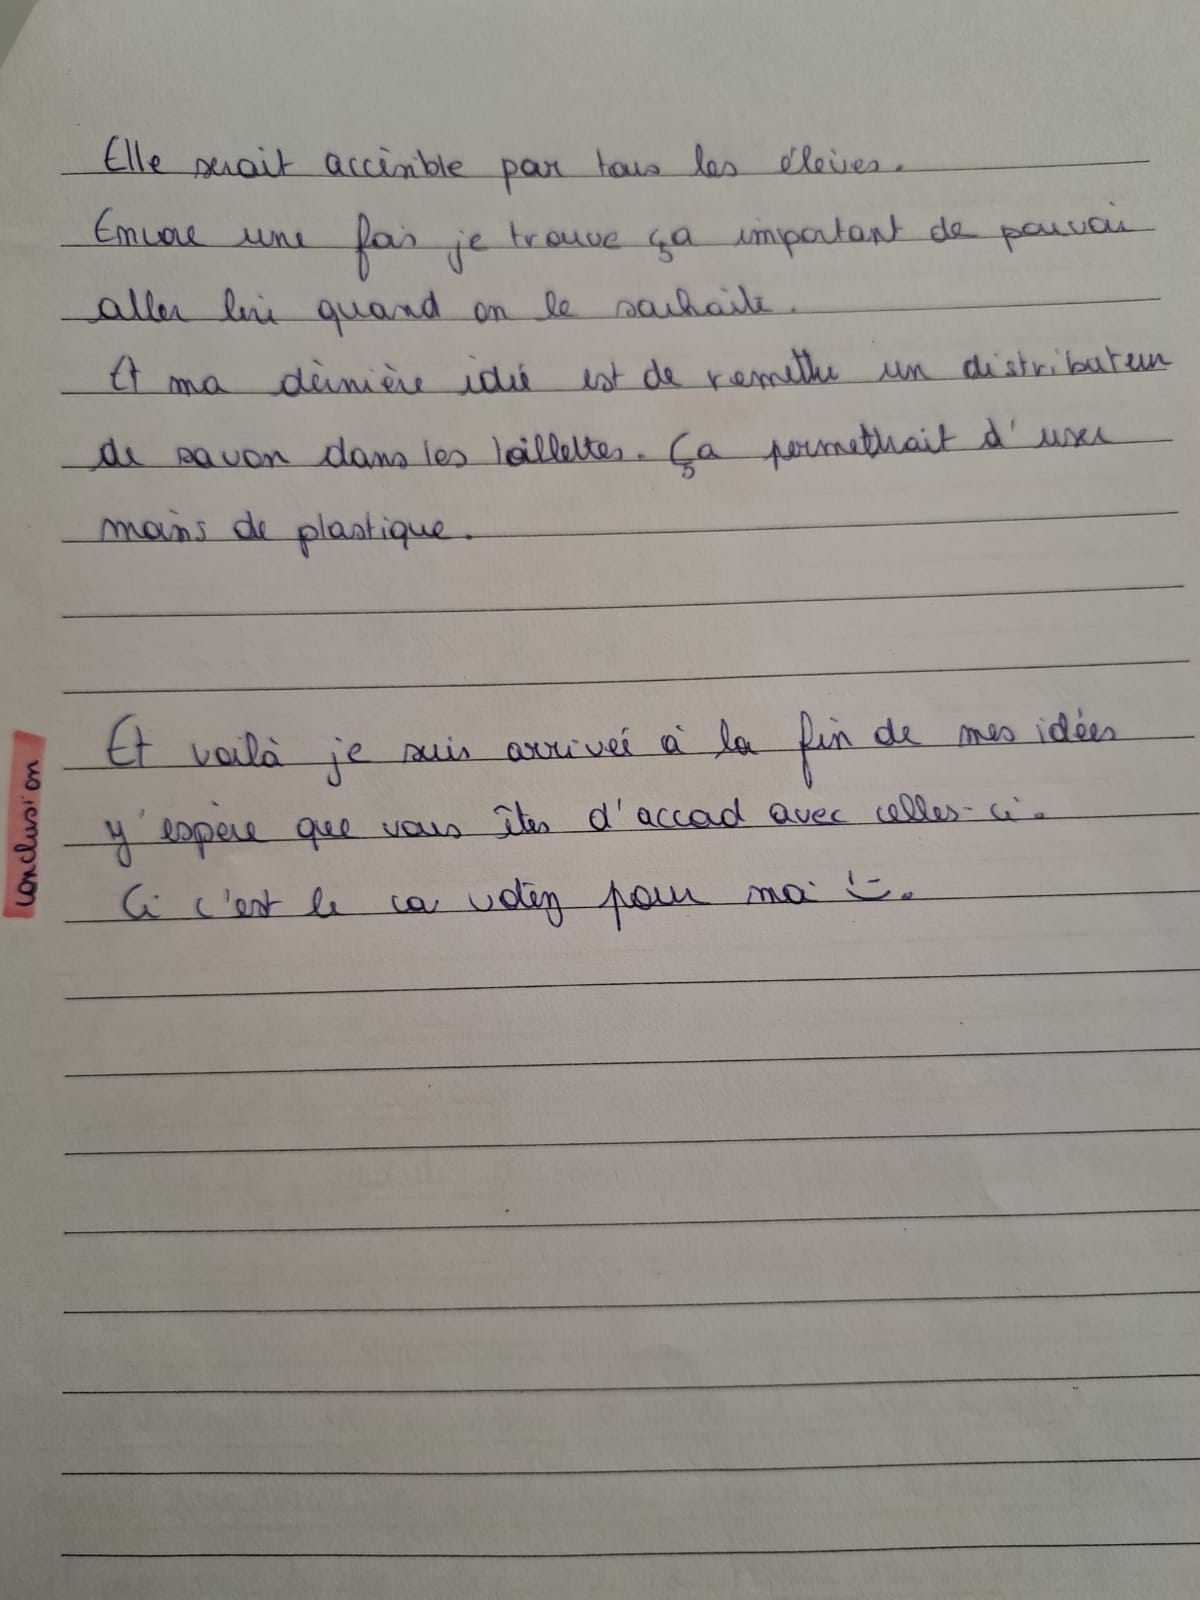 Elle serait accésible par tous les éleives.
Encore une fois je trouve ça important de pouvoir
aller lire quand on le souhaite.
Et ma dèrnière idée est de remettre un distributeur
de savon dans les toillettes. Ça permettrait d'user
moins de plastique.
Et voilà je suis arriveé à la fin de mes idées
y'espère que vous êtes d'accord avec celles-ci.
Ci c'est le ca votéz pour moi :-).
conclusion